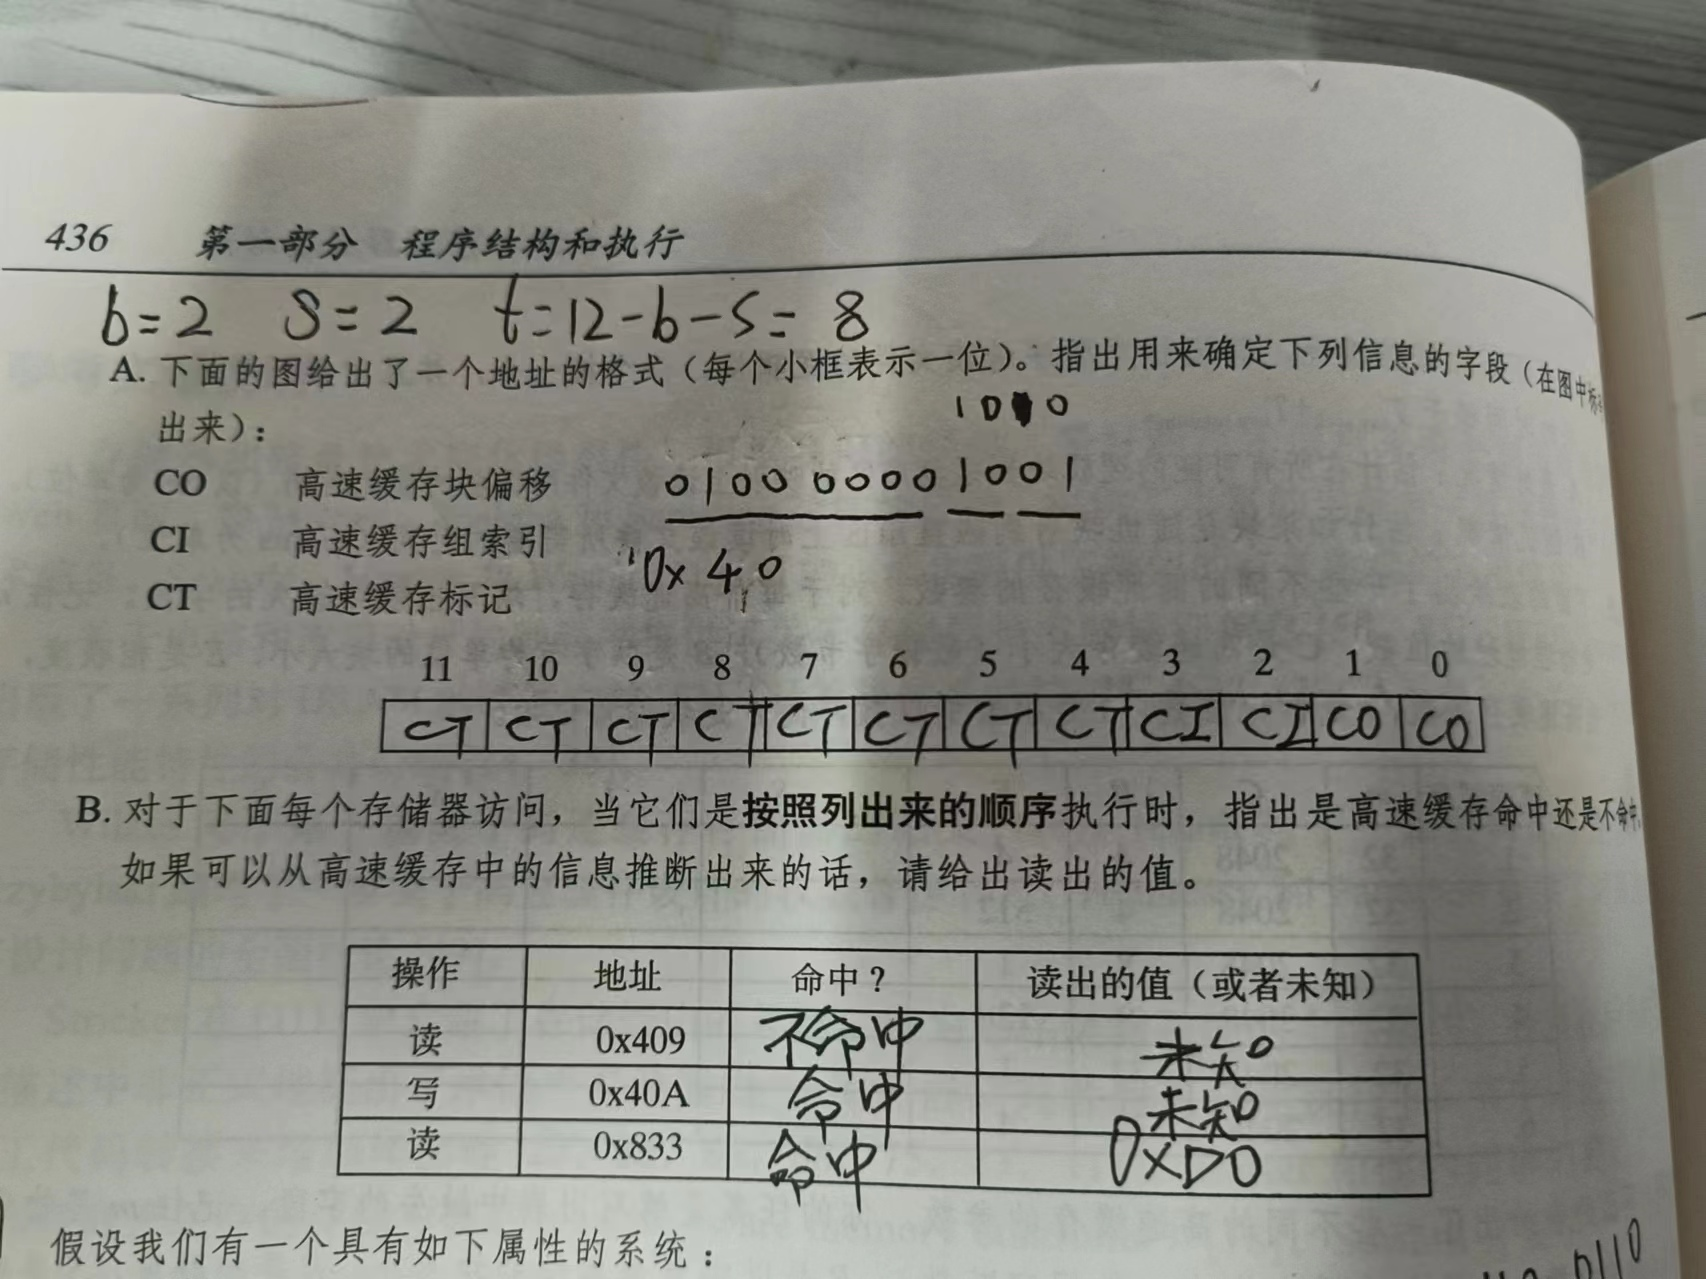 436 第一部分 程序结构和执行
b=2 S=2 t=12-b-s=8
A. 下面的图给出了一个地址的格式（每个小框表示一位）。指出用来确定下列信息的字段（在图中标
出来）：
10 0
CO 高速缓存块偏移 0100 0000 1001
CI 高速缓存组索引
0x40
CT 高速缓存标记
11 10 9 8 7 6 5 4 3 2 1 0
CT CT CT CT CT CT CT CT CI CI CO CO
B. 对于下面每个存储器访问，当它们是按照列出来的顺序执行时，指出是高速缓存命中还是不命中。
如果可以从高速缓存中的信息推断出来的话，请给出读出的值。
操作 地址 命中？ 读出的值（或者未知）
读 0x409 不命中 未知
写 0x40A 命中 未知
读 0x833 命中 0xD0
假设我们有一个具有如下属性的系统：
0110